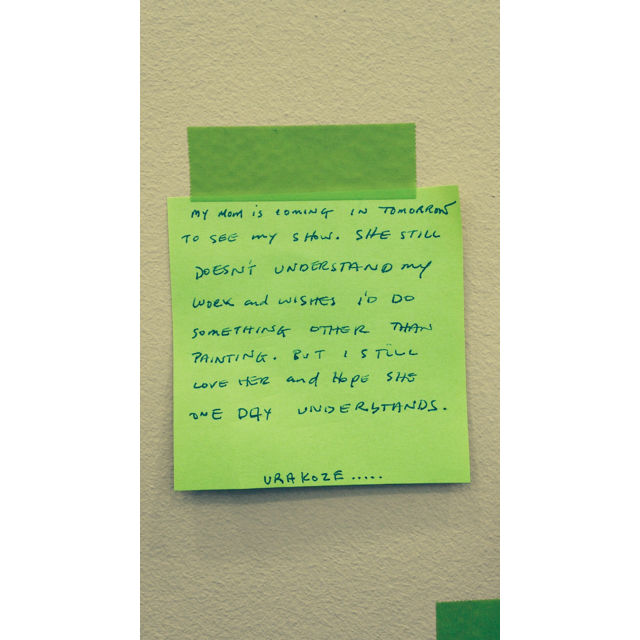 MY MOM is COMING IN TOMORROW
TO SEE MY SHOW. SHE STILL
DOESN'T UNDERSTAND MY
WORK and WISHES I'D DO
SOMETHING OTHER THAN
PAINTING. BUT I STILL
LOVE HER and HOPE SHE
ONE DAY UNDERSTANDS.
URAKOZE.....